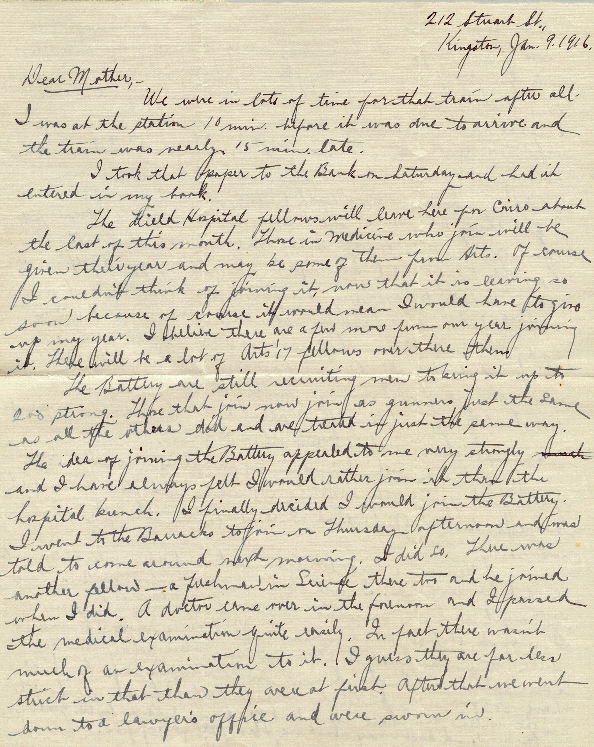 212 Stuart St.,
Kingston, Jan. 9. 1916.
Dear Mother,-
We were in lots of time for that train after all.
I was at the station 10 min. before it was due to arrive and
the train was nearly 15 min. late.
I took that paper to the Bank on Saturday and had it
entered in my book.
The Field Hospital fellows will leave here for Cairo about
the last of this month. Those in Medicine who join will be
given their year and may be some of them from Arts. Of course
I couldn't think of joining it, now that it is leaving so
soon because of course it would mean I would have to give
up my year. I believe there are a few more from our year joining
it. There will be a lot of Arts '17 fellows over there then.
The Battery are still recruiting men to bring it up to
strong. Those that join now join as gunners just the same
as all the others did and are treated in just the same way.
The idea of joining the Battery appealed to me very strongly
and I have always felt I would rather join it than the
hospital bunch. I finally decided I would join the Battery.
I went to the Barracks to join on Thursday afternoon and was
told to come around next morning. I did so. There was
another fellow - a freshman in Science there too and he joined
when I did. A doctor came over in the forenoon and I passed
the medical examination quite easily. In fact there wasn't
much of an examination to it. I guess they are far less
strict in that than they were at first. After that we went
down to a lawyer's office and were sworn in.